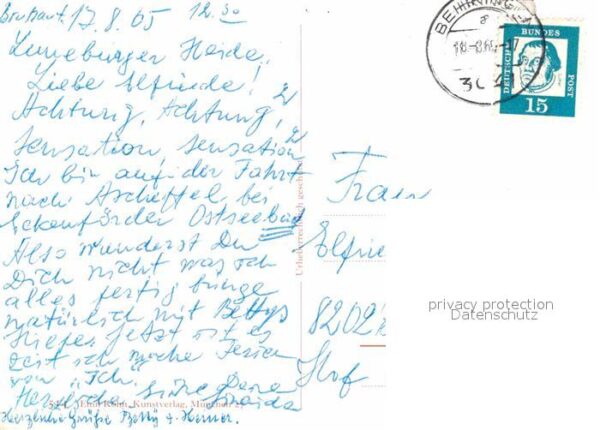 17.8.65 12.30
Luneburger Heide!
Liebe Elfriede!
Achtung, Achtung,
Sensation, Sensation
Ich bin auf der Fahrt
nach Ascheffel bei
Eckenförder Ostseebad
Also wunderst Du
Dich nicht was ich
alles fertig bringe
natürlich mit Bettys
Hilfe. Jetzt ist es
Zeit ich mache Ferien
von "Ich".
Herzliche Deine
Kunstverlag,
Herzliche Grüße Betty u. Werner.
Urheberrechtlich geschützt
Frau
Elfrie
8202
Hof
BEHRINGEN
a
18.-8.65
DEUTSCHE
BUNDES
POST
15
privacy protection
Datenschutz